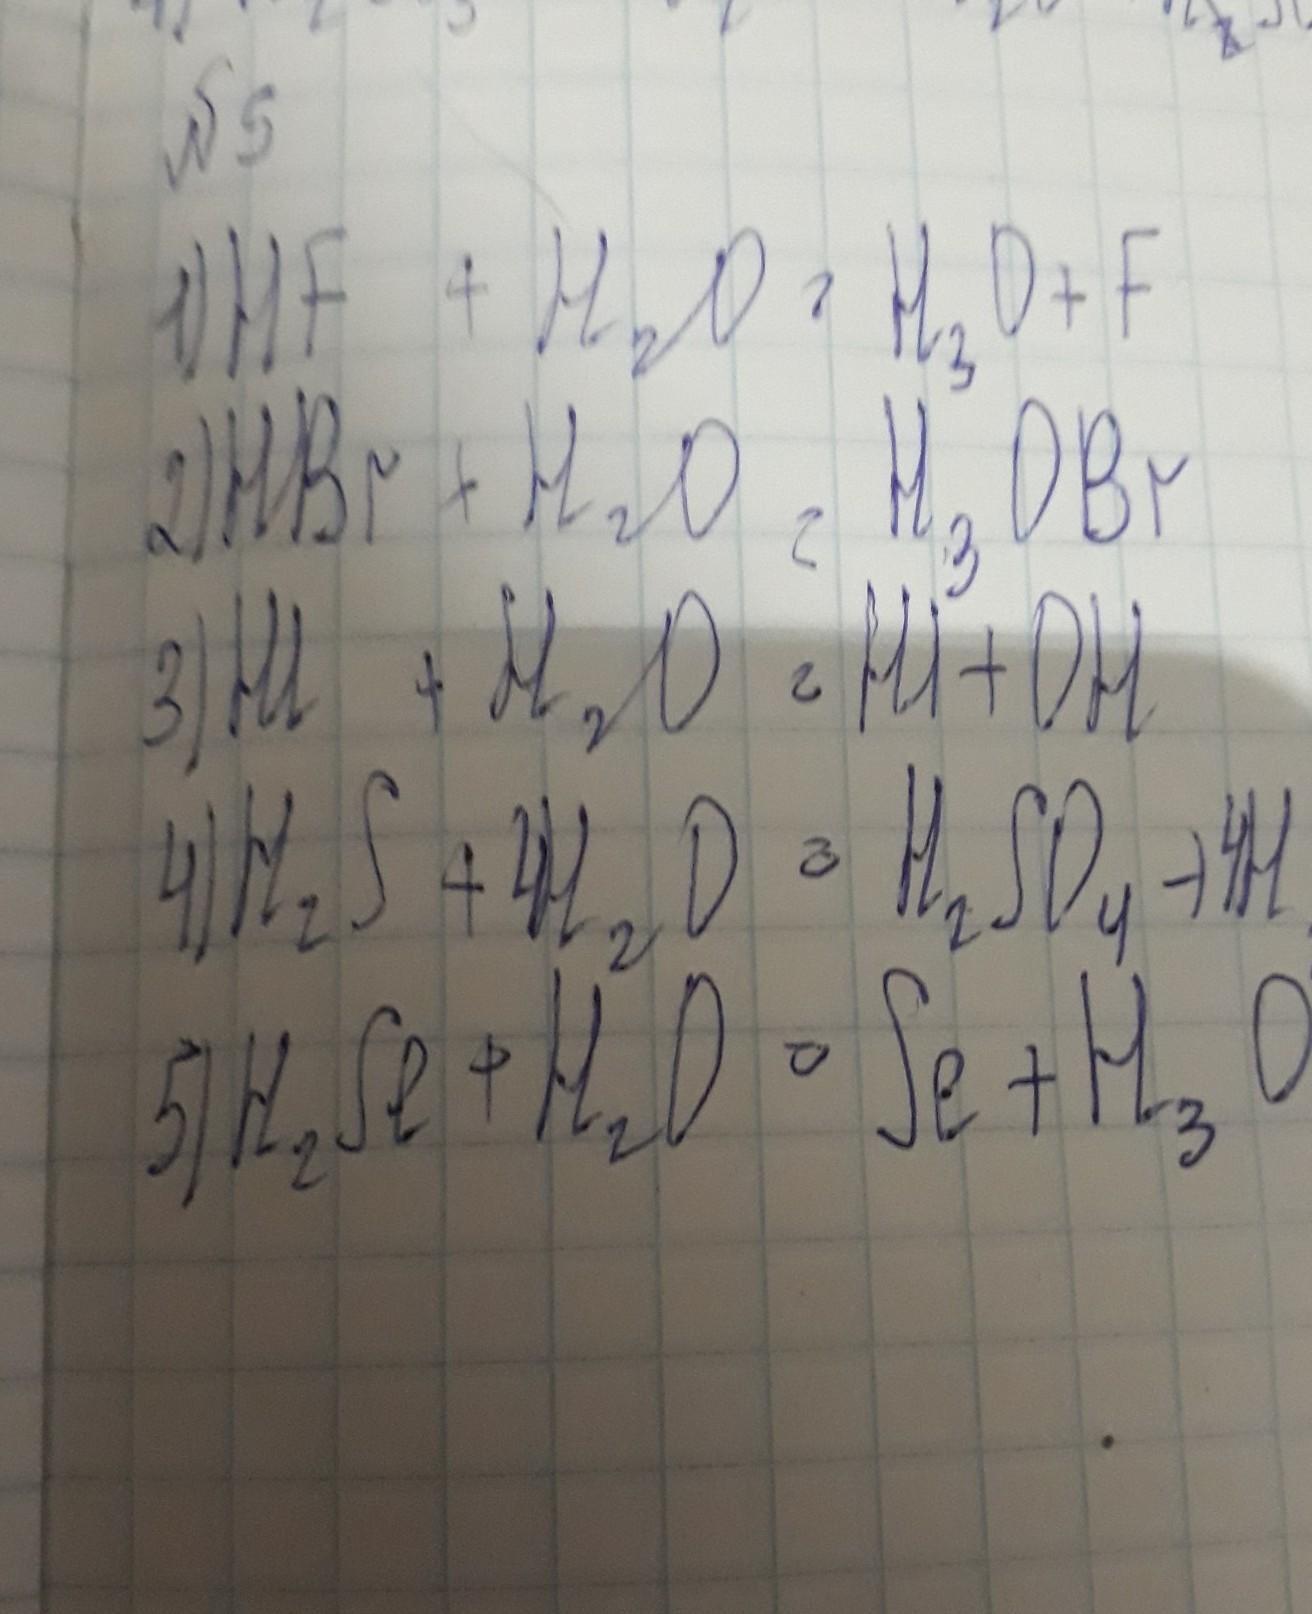 №5
1) HF + H₂O = H₃O + F
2) HBr + H₂O = H₃OBr
3) HI + H₂O = HI + OH
4) H₂S + 4H₂O = H₂SO₄ + 4H
5) H₂Se + H₂O = Se + H₃O